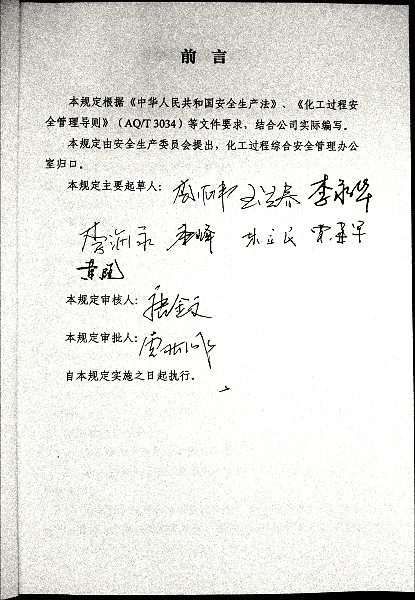 前言
本规定根据《中华人民共和国安全生产法》、《化工过程安
全管理导则》（AQ/T 3034）等文件要求，结合公司实际编写。
本规定由安全生产委员会提出，化工过程综合安全管理办公
室归口。
本规定主要起草人： 李永华
本规定审核人：
本规定审批人：
自本规定实施之日起执行。